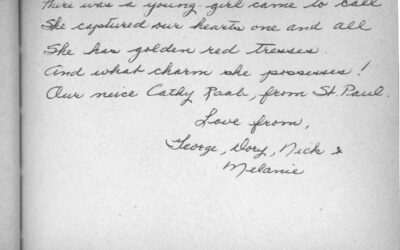 There was a young girl came to call
She captured our hearts one and all
She has golden red tresses.
And what charm she possesses!
Our neice Cathy Raab, from St. Paul.
Love from,
George, Dory, Nick &
Melanie